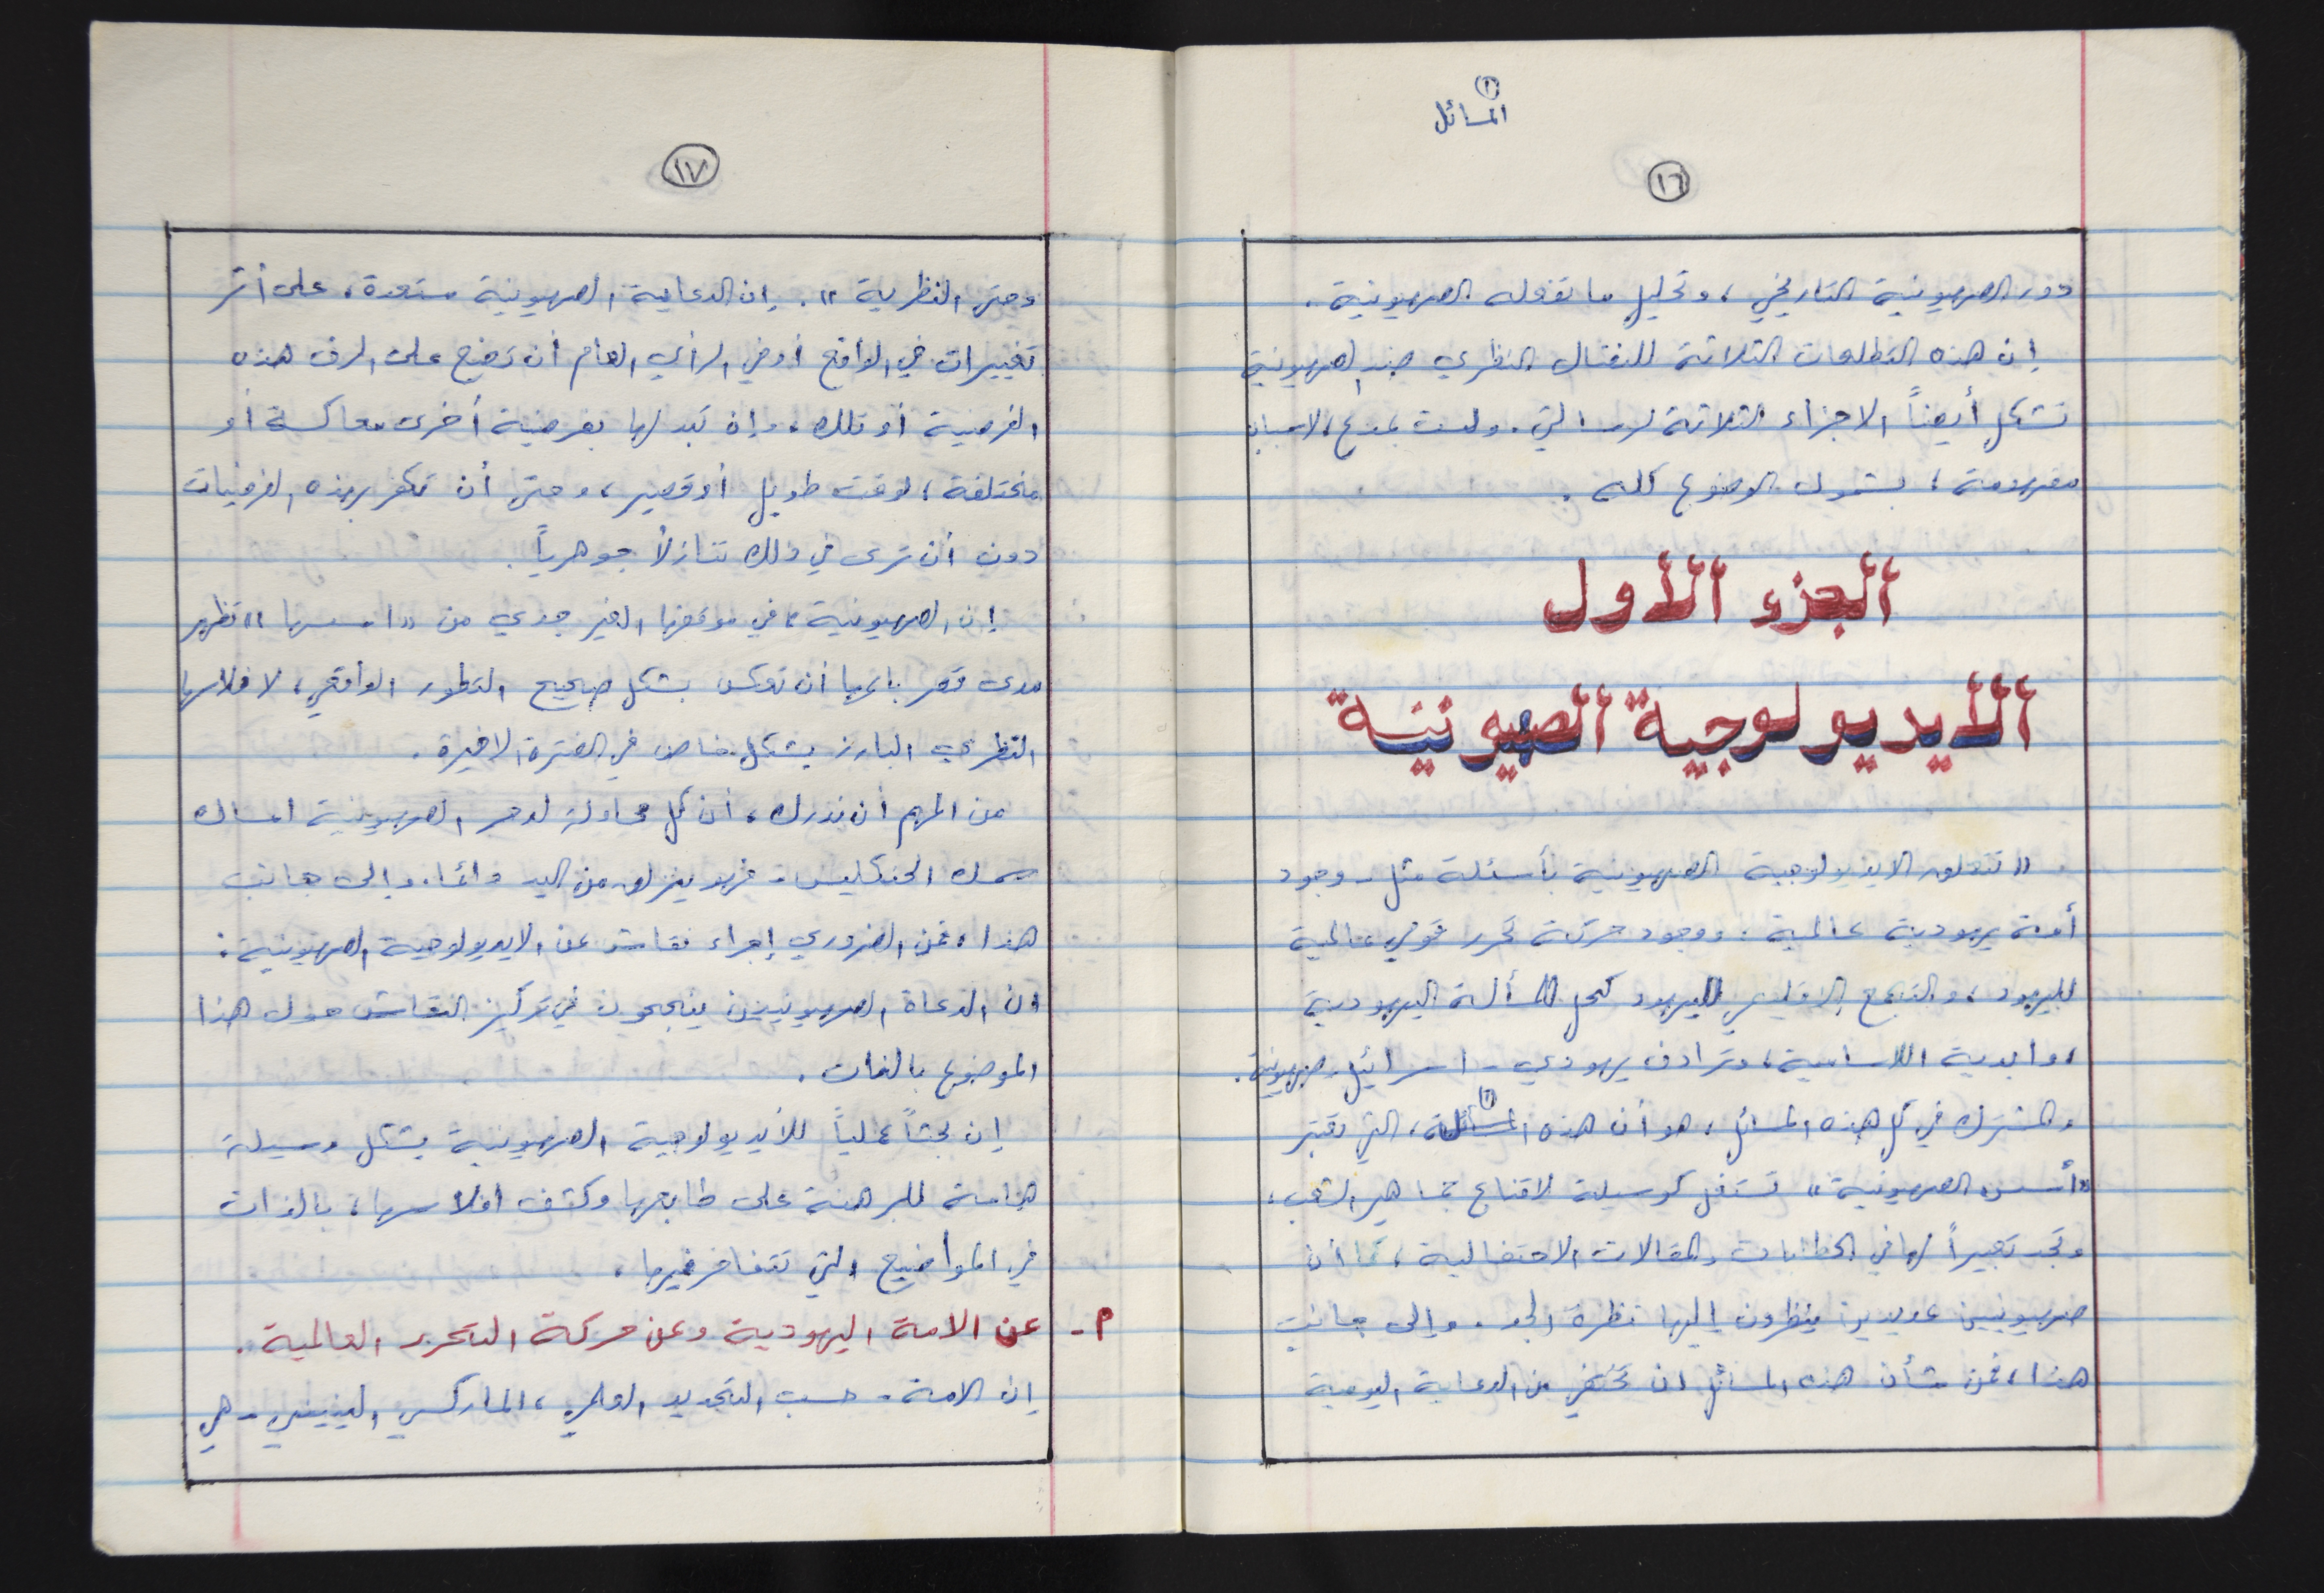 (١)
المسائل
١٦
دور الصهيونية التاريخي، وتحليل ما تفعله الصهيونية.
ان هذه التطلعات الثلاثة للنضال النظري ضد الصهيونية
تشكل أيضاً الاجزاء الثلاثة لدراستي. ولست بمدع، لاسباب
مفهومة، بشمول الموضوع كله.
الجزء الأول
الأيديولوجية الصهيونية
"تتعلق الايديولوجية الصهيونية بأسئلة مثل - وجود
أمة يهودية عالمية، ووجود حركة تحرر قومي عالمية
لليهود، والتجمع الاقليمي لليهود كحل للمسألة اليهودية
، وابدية اللاسامية، وترادف يهودي - اسرائيل - صهيونية.
والمشترك في كل هذه المسائل، هو أن هذه المسألة (١)، التي تعتبر
"أسس الصهيونية" تستغل كوسيلة لاقناع جماهير الشعب،
وتجد تعبيراً لها في الخطابات والمقالات الاحتفالية، كما أن
صهيونيين عديدين ينظرون إليها نظرة الجد. وإلى جانب
هذا، فمن شأن هذه المسائل ان تختفي من الدعاية اليومية
١٧
وحتى النظرية". إن الدعاية الصهيونية مستعدة، على أثر
تغييرات في الواقع أو في الرأي العام أن تضع على الرف هذه
الفرضية أو تلك، وإن تبدلها بفرضية أخرى معاكسة أو
مختلفة، لوقت طويل أو قصير، وحتى أن تكفر بهذه الفرضيات
دون أن ترى في ذلك تنازلاً جوهرياً.
إن الصهيونية، في موقفها الغير جدي من "اسسها" تظهر
مدى قصر باعها أن تعكس بشكل صحيح التطور الواقعي، لافلاسها
النظري البارز بشكل خاص في الفترة الاخيرة.
من المهم أن ندرك، أن كل محاولة لدحر الصهيونية امساك
سمك الحنكليس - فهو ينزلق من اليد دائما. وإلى جانب
هذا، فمن الضروري إجراء نقاش عن الايديولوجية الصهيونية:
ان الدعاة الصهيونيين ينجحون في تركيز النقاش حول هذا
الموضوع بالذات.
إن بحثاً علمياً للأيديولوجية الصهيونية يشكل وسيلة
هامة للبرهنة على طابعها وكشف افلاسها، بالذات
في المواضيع التي تتفاخر فيها.
م- عن الامة اليهودية وعن حركة التحرر العالمية.
إن الامة - حسب التحديد العلمي، الماركسي اللينيني - هي